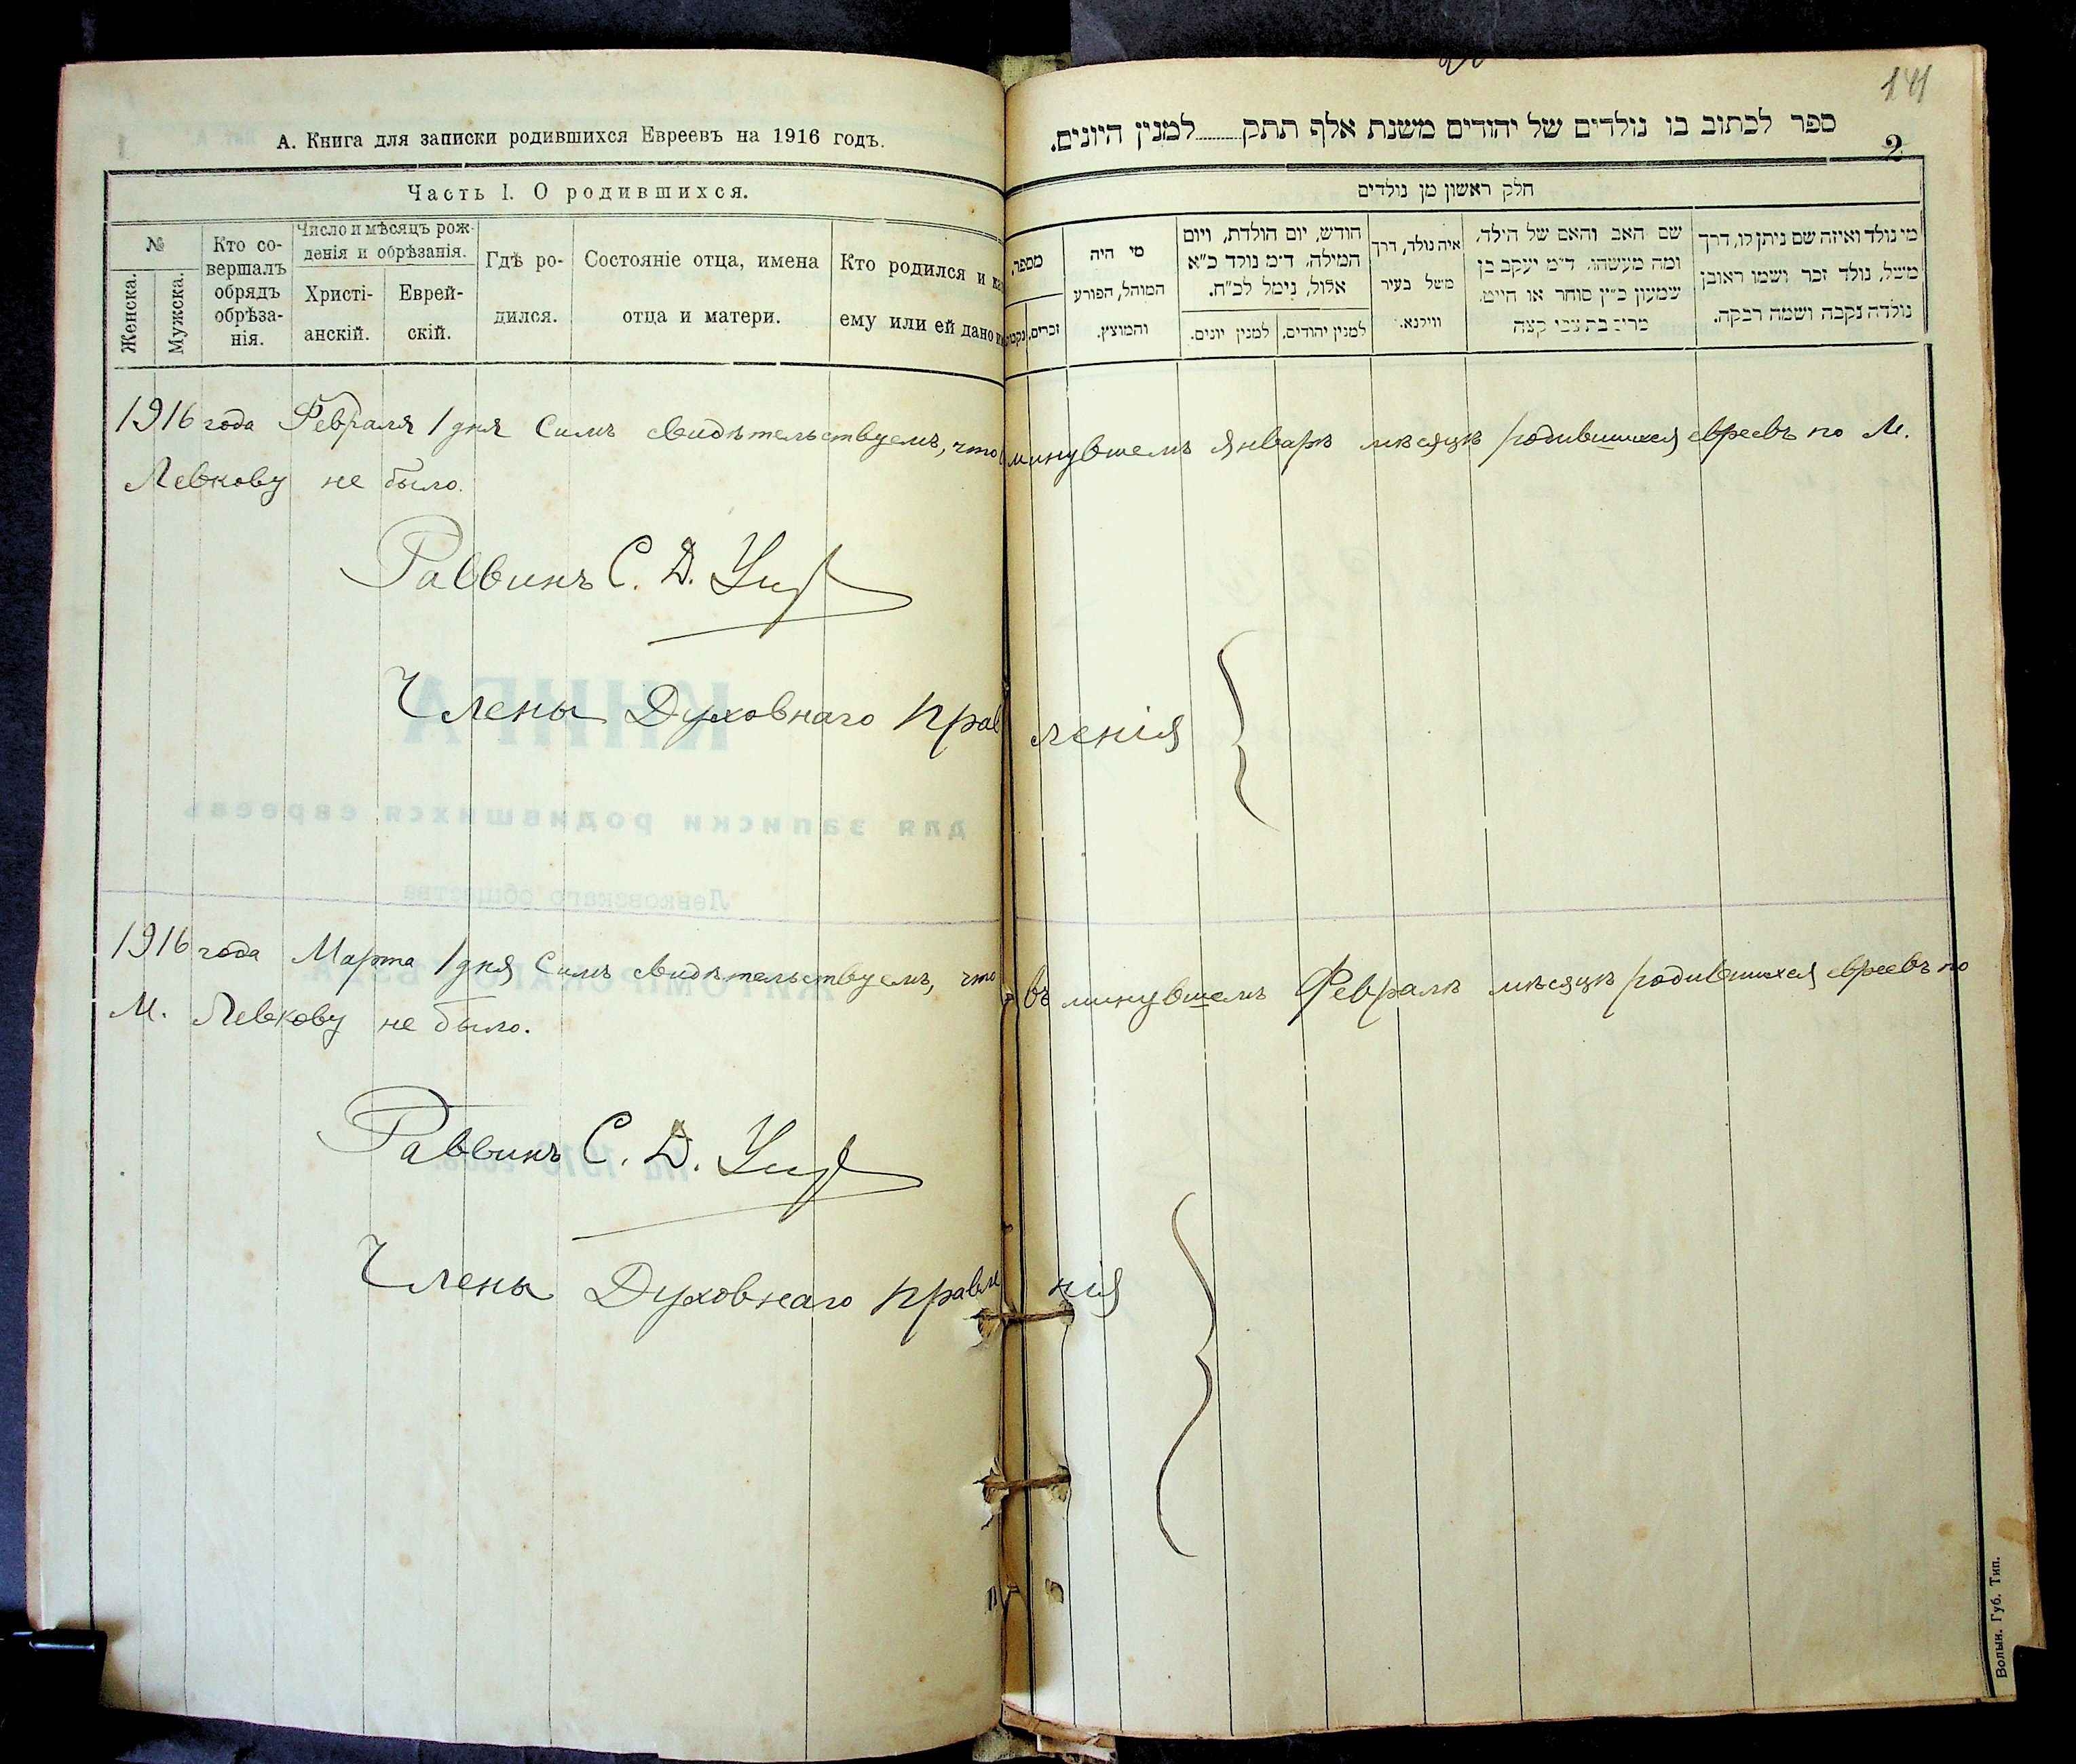 141
А. Книга для записки родившихся Евреевъ на 1916 годъ.
ספר לכתוב בו נולדים של יהודים משנת אלף תתק........למנין היונים.
2
Часть I. О родившихся.
חלק ראשון מן נולדים
№
Женска.
Мужска.
Кто со-
вершалъ
обрядъ
обрѣза-
нія.
Число и мѣсяцъ рож-
денія и обрѣзанія.
Христі-
анскій.
Еврей-
скій.
Гдѣ ро-
дился.
Состояніе отца, имена
отца и матери.
Кто родился и
ему или ей дано
מספר.
זכרים.
מי היה
המוהל, הפורע
והמוצץ.
חודש, יום הולדת, ויום
המילה. ד״מ נולד כ״א
אלול, נימל לכ״ח.
למנין יהודים.
למנין יונים.
איה נולד, דרך
משל בעיר
ווילנא.
שם האב והאם של הילד,
ומה מעשהו. ד״מ יעקב בן
שמעון כ״ץ סוחר או חייט.
מרים בת צבי קצה
מי נולד ואיזה שם ניתן לו, דרך
משל, נולד זכר ושמו ראובן
נולדה נקבה ושמה רבקה.
1916 года Февраля 1 дня Симъ свидѣтельствуемъ, что минувшемъ Январѣ мѣсяцѣ родившихся евреевъ по М.
Левкову не было.
Раввинъ С. Д.
Члены Духовнаго правленія
1916 года Марта 1 дня Симъ свидѣтельствуемъ, что въ минувшемъ Февралѣ мѣсяцѣ родившихся евреевъ по
М. Левкову не было.
Раввинъ С. Д.
Члены Духовнаго правленія
Волын. Губ. Тип.
КНИГА
для записки родившихся евреевъ
Левковскаго общества